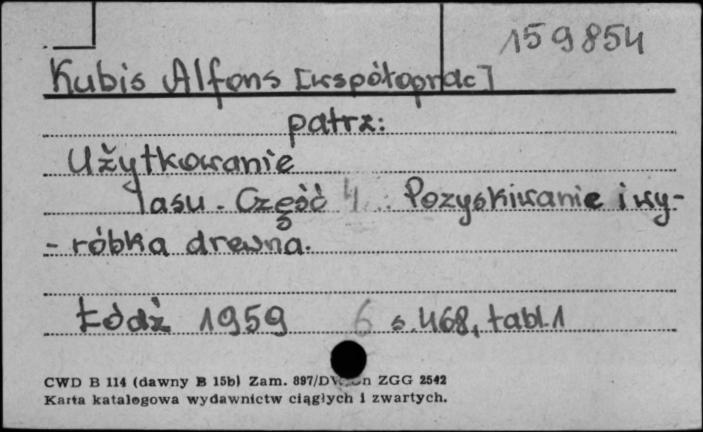 159854
Kubis Alfons [współoprac]
patrz:
Użytkowanie
lasu. Część 4. Pozyskiwanie i wy-
- róbka drewna.
Łódź 1959 6 s. 468, tabl. 1
CWD B 114 (dawny B 15b) Zam. 897/DW. ZGG 2542
Karta katalogowa wydawnictw ciągłych i zwartych.